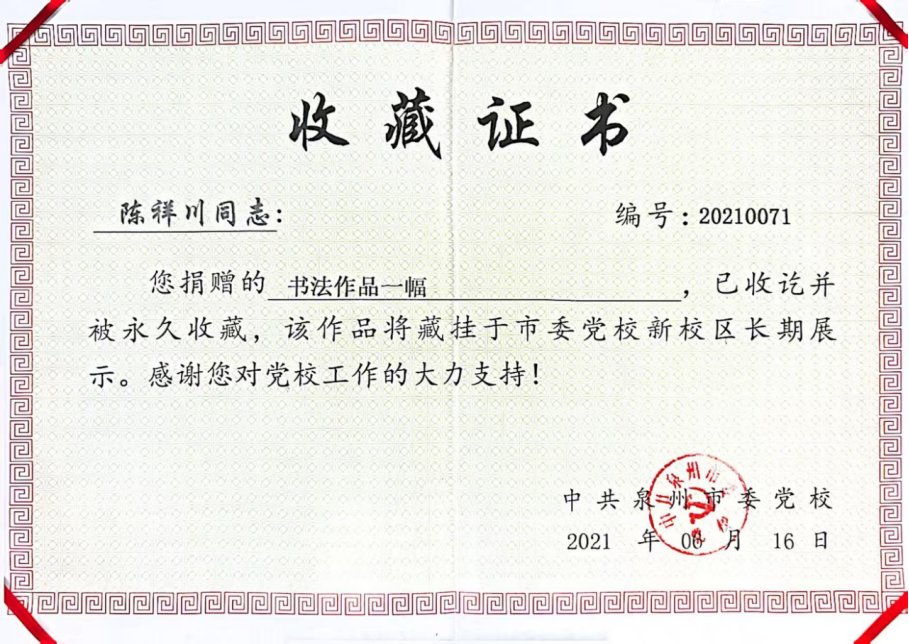 收藏证书
陈祥川同志:
编号:20210071
您捐赠的 书法作品一幅 ,已收讫并
被永久收藏,该作品将藏挂于市委党校新校区长期展
示。感谢您对党校工作的大力支持!
中共泉州市委党校
2021 年 06 月 16 日